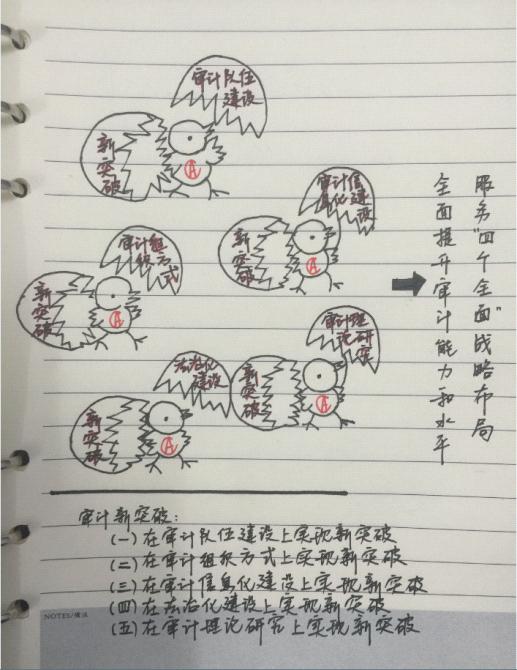 审计队伍
建设
新突破
A
审计信
息化建
设
新突破
A
审计组
织方式
新突破
A
审计理
论研究
新突破
A
法治化
建设
新突破
A
服务“四个全面”战略布局
全面提升审计能力和水平
审计新突破：
(一)在审计队伍建设上实现新突破
(二)在审计组织方式上实现新突破
(三)在审计信息化建设上实现新突破
(四)在法治化建设上实现新突破
(五)在审计理论研究上实现新突破
NOTES/魔法